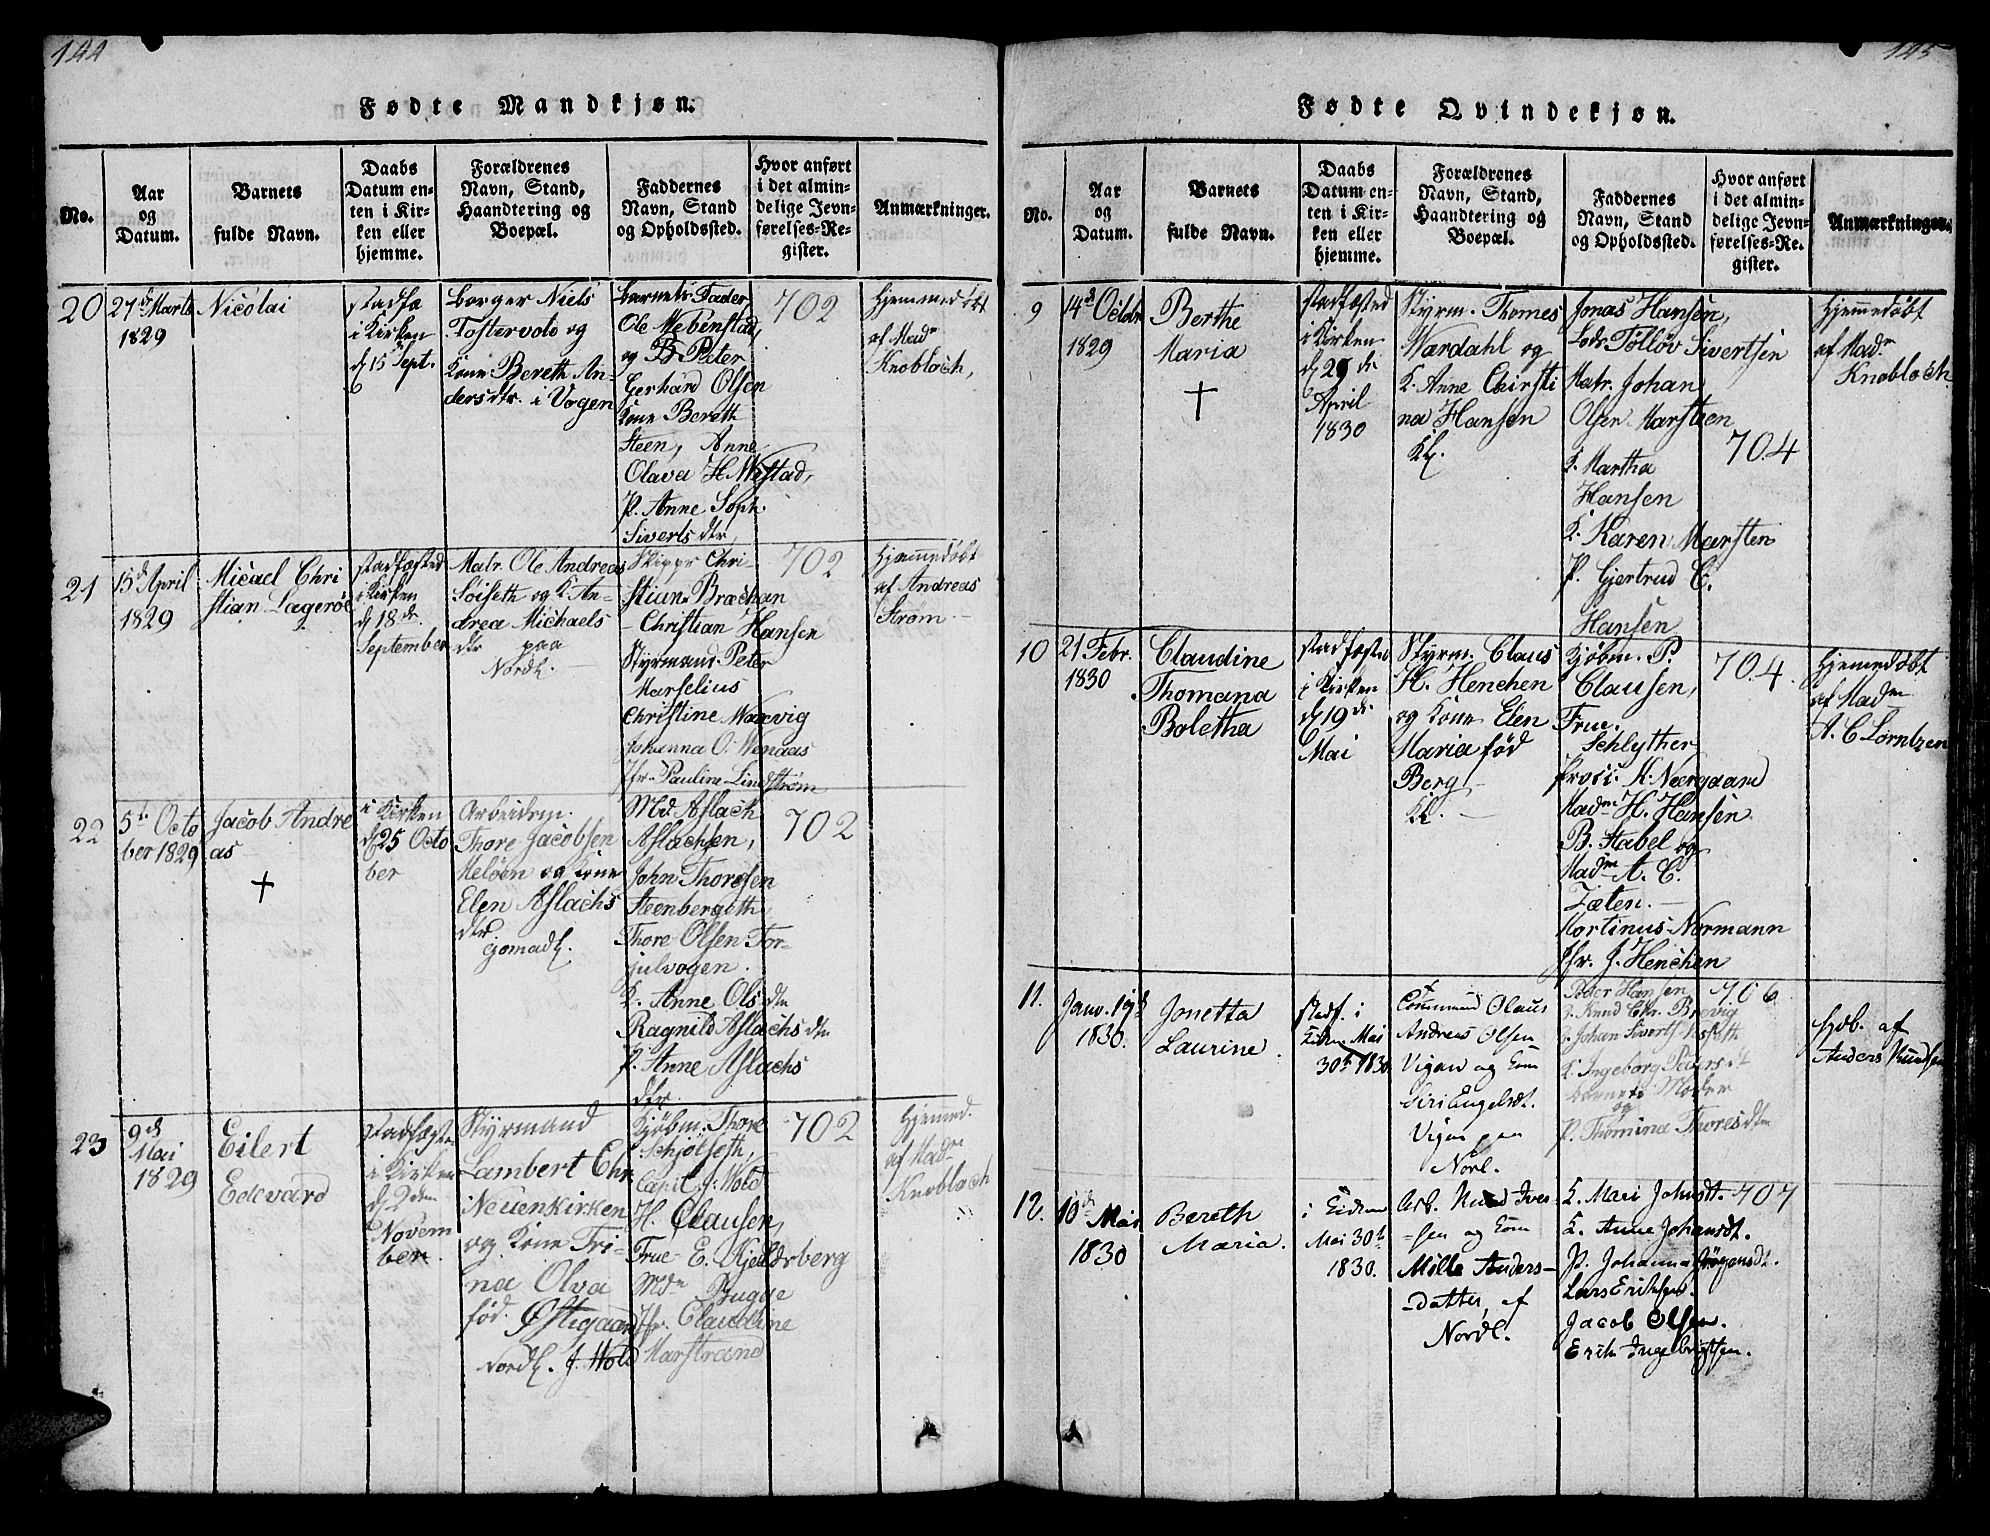 144
Fødte Mandkjøn.
No.
Aar
og
Datum.
Barnets
fulde Navn.
Daabs
Datum en-
ten i Kir-
ken eller
hjemme.
Forældrenes
Navn, Stand,
Haandtering og
Boepæl.
Faddernes
Navn, Stand
og Opholdssted.
Hvor anført
i det almin-
delige Jevn-
førelses-Re-
gister.
Anmærkninger.
20
27de Marts
1829
Nicolai
stadfæ
i Kirken
d 15 Sept.
Borger Niels
Tostervolo og
Kone Bereth An-
dersdtr. i Vogen
Barnets Fader
Ole Mebenstad,
og B Peter
Gerhard Olsen
Kone Bereth
Steen, Anne
Olava H. Nystad,
P. Anne Soph.
Siverts dtr.
702
Hjemmedøbt
af Madm
Knobloch,
21
15d April
1829
Micael Chri
stian Lagerøe
stadfæsted
i Kirken
d 18de
September
Matr. Ole Andreas
Soiseth og K. An-
drea Michaels
dtr paa
Nordl.
Skippr Chri-
stian Brechan
- Christian Hansen
Styrmand Peter
Marselius
Christine Waxvig
Johanna O. Wenaas
Jfr. Pauline Lindstrøm
702
Hjemmedøbt
af Andreas
Strøm. -
22
5te Octo
ber 1829
Jacob Andre
as
i Kirken
d 25 Octo
ber
Arbeidsm.
Thore Jacobsen
Meløen og Kone
Elen Aslachs
dtr
Gomadl.
Md. Aslach
Aslachsen,
John Thoresen
Steenbergeth
Thore Olsen Tor-
julvogen.
K. Anne Ols dtr
Ragnild Aslachs dtr
P. Anne Aslachs
dtr.
702
23
9d
Mai
1829
Eilert
Edevard
stadfæste
i Kirken
d 2den
Novem
ber.
Styrmand
Lambert Chr.
Neuenkirken
og Kone Tri-
na Olva
fød. Østigaard
Nordl. J. Wold
Kjøbm. Thore
Schjølseth,
Capit. J. Wold
H. Clausen,
Frue E. Kjeldsberg
Mdm Bugge
Jfr. Claudine
Marstrand
702
Hjemmed.
af Madm
Knobloch
145
Fødte Qvindekjøn.
No.
Aar
og
Datum.
Barnets
fulde Navn.
Daabs
Datum en-
ten i Kir-
ken eller
hjemme.
Forældrenes
Navn, Stand,
Haandtering og
Boepæl.
Faddernes
Navn, Stand
og Opholdssted.
Hvor anført
i det almin-
delige Jevn-
førelses-Re-
gister.
Anmærkninger.
9
14d Octbr
1829
Berthe
Maria
stadfæsted
i Kirken
d 29 de
April
1830
Styrm. Thomes
Wærdahl og
K. Anne Chirsti
na Hansen
Kl.
Jonas Hansen,
Lods Tølløv Sivertsen
Matr. Johan
Olsen Marsteen
K. Martha
Hansen
K. Karen Marsten
P. Gjertrud C.
Hansen
704
Hjemmedøbt
af Madm
Knobloch
10
21 Febr.
1830
Claudine
Thomana
Boletha
stadfæste
i Kirken
d 19 de
Mai
Styrm. Claus
H. Henchen
og Kone Elen
Maria fød
Berg
Kl. -
Kjøbm. P.
Clausen,
Frue
Schlyther
Proci. K. Neergaard
Madm H. Hansen
B. Stabel og
Madm A. C.
Zæten. -
Mortinus Normann
Jfr. J. Henchen
704
Hjemmedøbt
af Madm
A. C. Lorntzen
11.
Janv. 19d
1830.
Jonetta
Laurine.
stadf. i
Kirken Mai
30te 1830
Olaus
Andreas Olsen
Vigan og Kone
Siri Engelsdt.
Vigan paa
Norl.
Peder Hansen
J. Knud Chr. Brevig
J. Johan Siverts.
K. Ingeborg Peders dt
Barnets Moder
og
P. Thomina Thoresdtr
706
Hdb. af
Anders Knudsen
12.
10d Mai
1830
Bereth
Maria.
i Kirken
Mai 30te
1830.
Arb. Knud Iver-
-sen og Kone
Mille Anders-
-datter, af
Nordl.
K. Mari Johnsdt.
K. Anne Johansdt.
P. Johanna Jørgensdt.
Lars Eriksen.
Jacob Olsen.
Erik Ingebrigtsen.
707